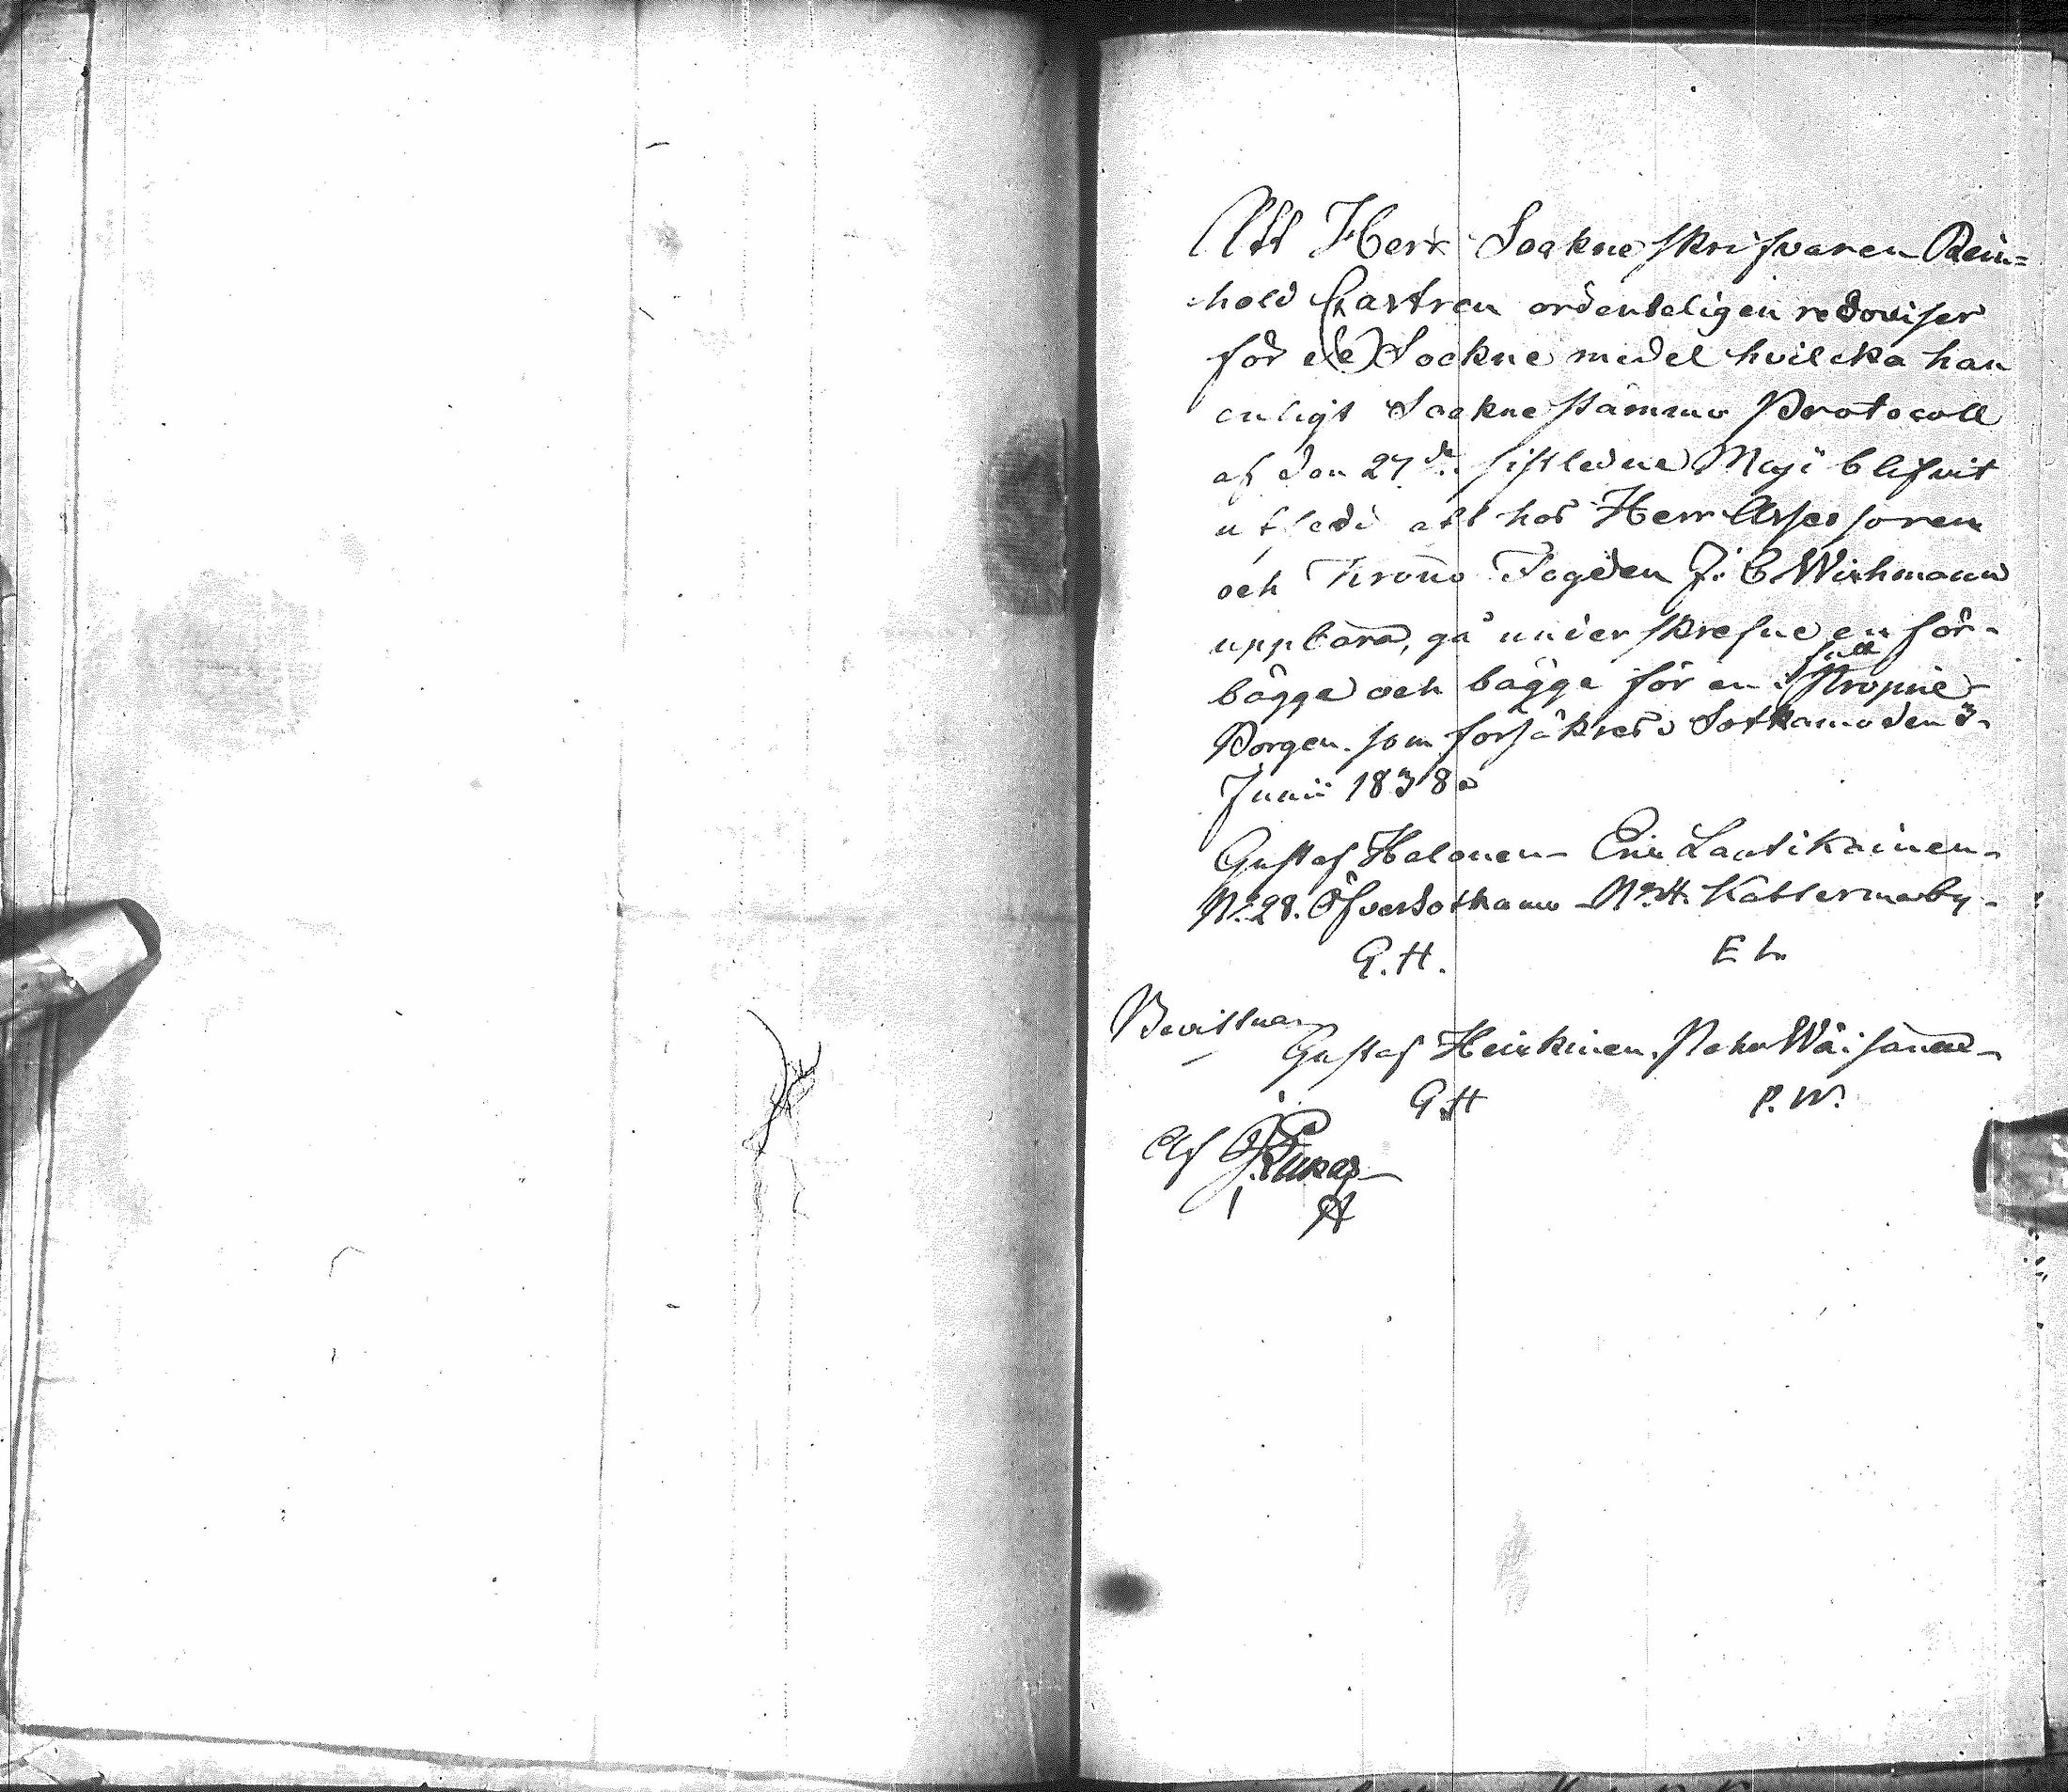 Att Herr Sockneskrifvaren Rein=
hold Castren ordenteligen redoviser
för de Sockne medel hvilcka han
enligt Sockne stämmo Protocoll
af den 27de sistledne Maji blifvit
utsedd att hos Herr Assessoren
och Krono Fogden J. C. Wichmann
uppbära, gå underskrefne en för
bägge och bägge för en full
Borgen. som försäkres Sotkamo den 3
Junii 1838.
Gustaf Halonen Eric Lautikainen
No. 28. Öfversotkamo No. 4. Kattermaby
G. H. E L.
Bevittnar
Gustaf Heickinen. Petter Wäisänen
G H P. W.
Af